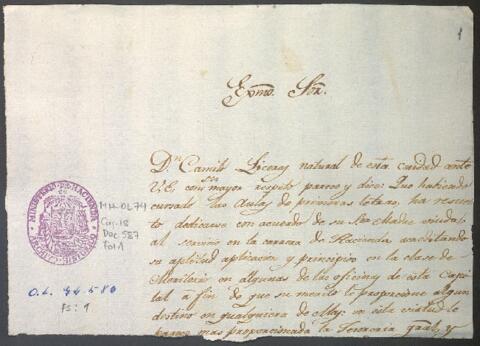 1
Exmo. Sor.
Dn. Camilo Liceras natural de esta ciudad ante
V.E. con su mayor respeto parece y dice: Que habiendo
cursado las Aulas de primeras letras, ha resuel
to dedicarse con acuerdo de su Sra Madre viuda
al servicio en la carrera de Hacienda acreditando
su aptitud aplicación y principios en la clase de
Meritorio en algunas de las oficinas de esta Capi
tal a fin de que su merito le proporcione algun
destino en qualquiera de ellas: en esta virtud le
parece mas proporcionada la Tesoreria gral, y
MINISTERIO DE HACIENDA
ARCHIVO HISTORICO
MH-OL 74
Caj. 18
Doc. 587
Fol 1
O.L. 74-587
Fs: 1